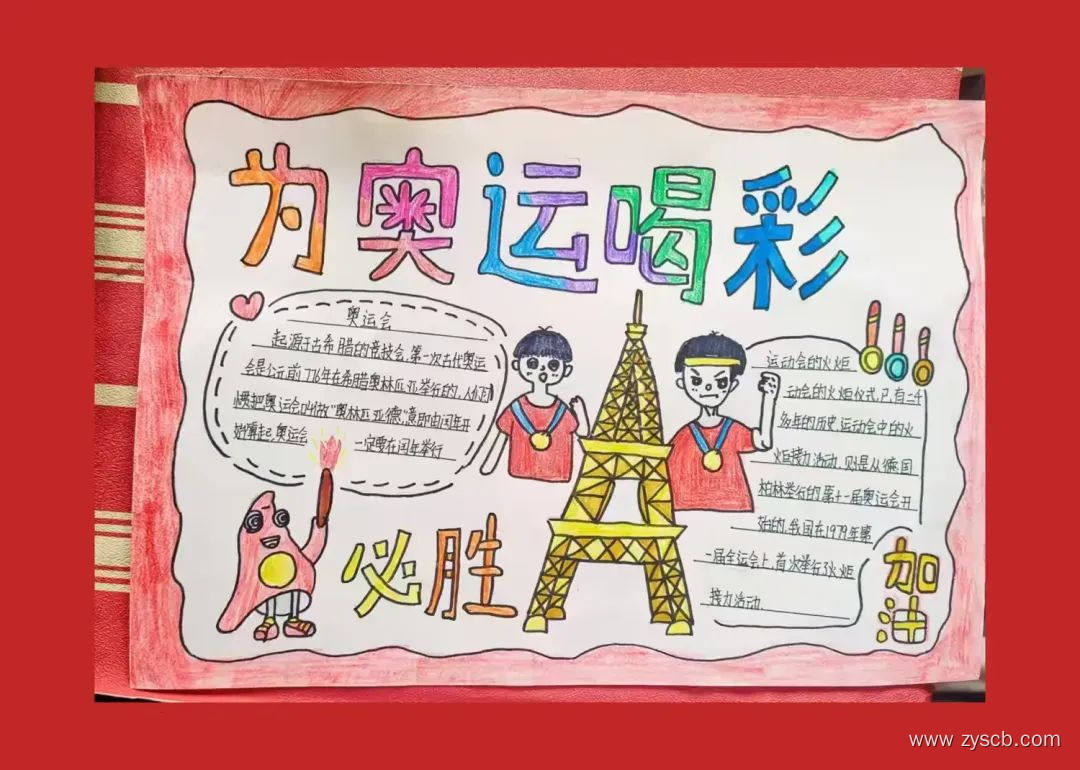 为奥运喝彩
奥运会
起源于古希腊的竞技会,第一次古代奥运
会是公元前776年在希腊奥林匹亚举行的,人们习
惯把奥运会叫做"奥林匹亚德",意即由四年开
始。奥运会 一定要在四年举行
运动会的火炬
动会的火炬仪式,已有二千
多年的历史,运动会中的火
炬接力活动,则是从德国
柏林举行的第十一届奥运会开
始的,我国在1979年第
一届全运会上,首次举行了火炬
接力活动.
必胜
加油
www zyscb.com